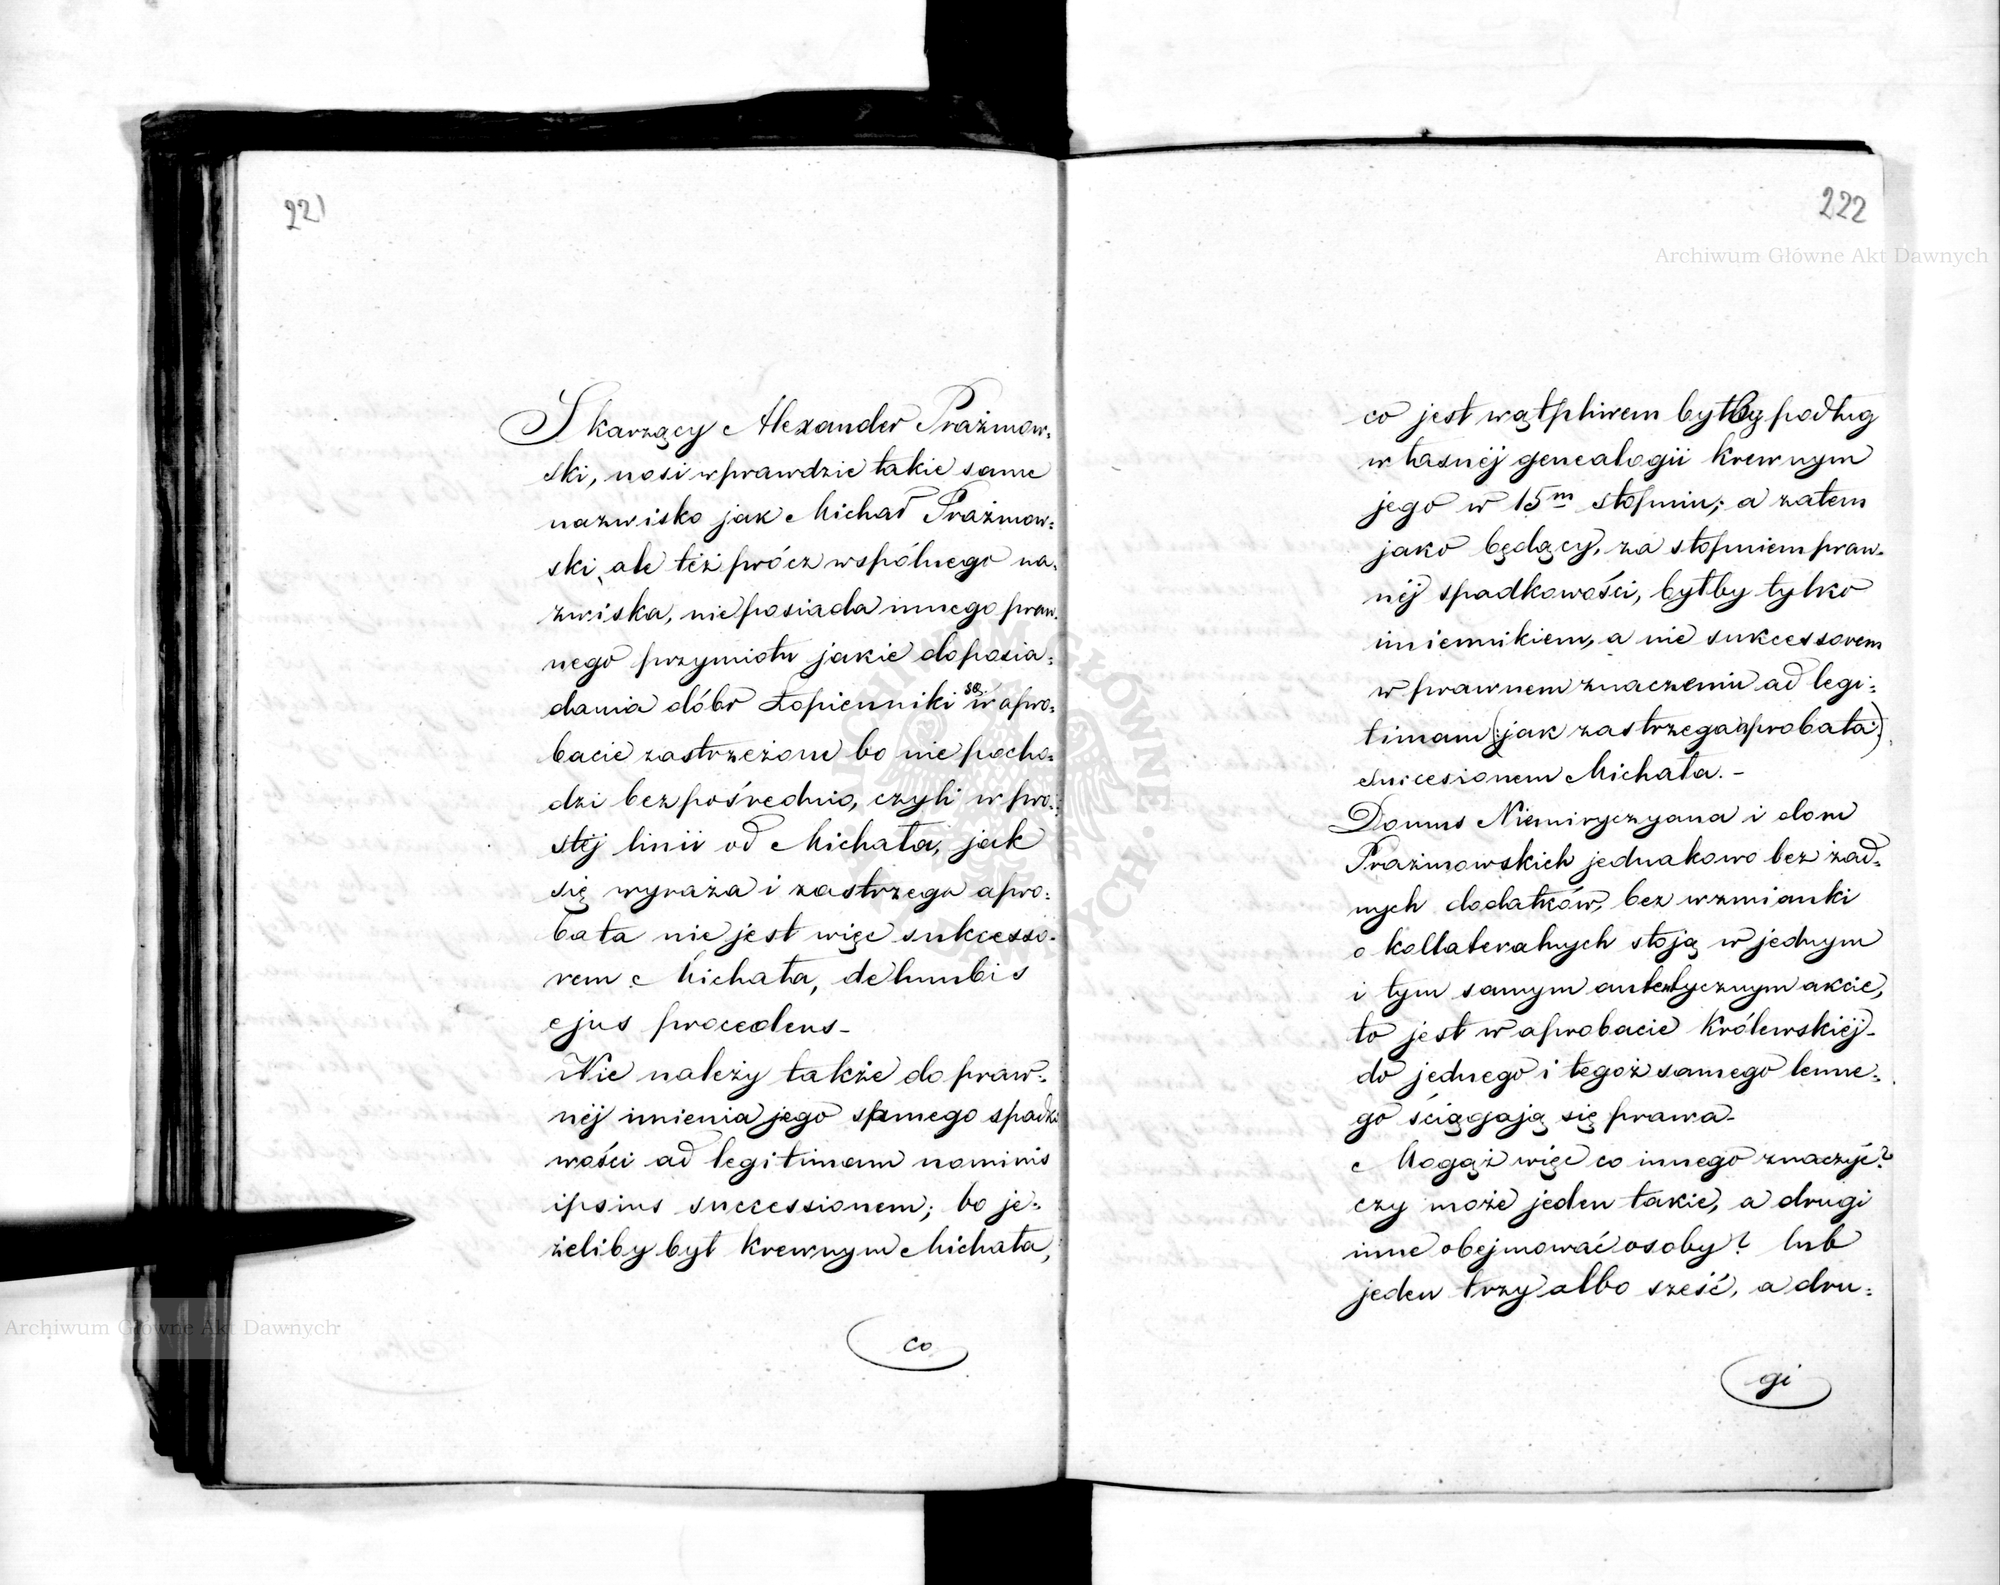 221
Skarzący Alexander Prażmow-
ski, nosi wprawdzie takie same
nazwisko jak Michał Prażmow-
ski, ale też prócz wspólnego na-
zwiska, nie posiada innego praw-
nego przymiotu jakie do posia-
dania dóbr Łopienniki są w apro-
bacie zastrzeżone bo nie pocho-
dzi bezpośrednio, czyli w pro-
stéj linii od Michała, jak
się wyraża i zastrzega apro-
bata nie jest więc sukcesso-
rem Michała, de lumbis
ejus procedens-
Nie należy także do praw-
néj imienia jego samego spadko
wości ad legitimam nominis
ipsius successionem; bo je-
żeliby był krewnym Michała,
co
222
co jest wątpliwem byłby podług
własnéj genealogii krewnym
jego w 15m stopniu; a zatem
jako będący, za stopniem praw-
néj spadkowości, byłby tylko
imiennikiem, a nie sukcessorem
w prawnem znaczeniu ad legi-
timam (:jak zastrzega aprobata:)
Succesionem Michała.-
Domus Niemiryczyana i dom
Prażmowskich jednakowo bez żad-
nych dodatków, bez wzmianki
o kollateralnych stoją w jednym
i tym samym autentycznym akcie,
to jest w aprobacie Królewskiéj-
do jednego i tegoż samego lenne-
go ściągają się prawa-
Mogąż więc co innego znaczyć?
czy może jeden takie, a drugi
inne obejmować osoby? lub
jeden trzy albo sześć, a dru-
gi
Archiwum Główne Akt Dawnych
Archiwum Główne Akt Dawnych